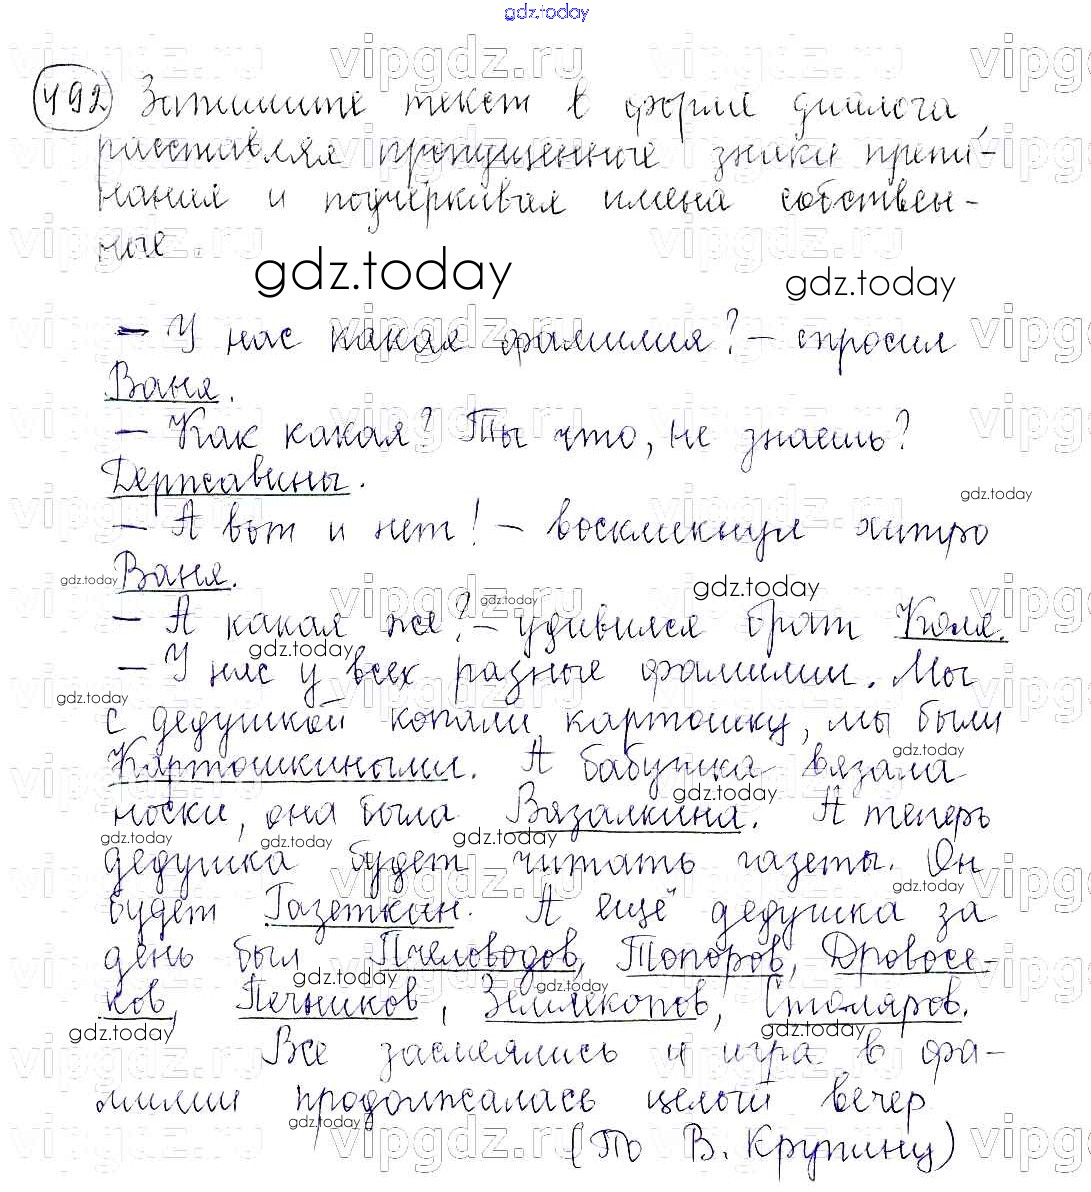 gdz.today
492 Запишите текст в форме диалога,
расставляя пропущенные знаки препи-
нания и подчёркивая имена собствен-
ные.
gdz.today gdz.today
– У нас какая фамилия? – спросил
Ваня.
– Как какая? Ты что, не знаешь?
Державины.
gdz.today
– А вот и нет! – воскликнул хитро
Ваня.
gdz.today gdz.today gdz.today
– А какая же? – удивился брат Коля.
gdz.today
– У нас у всех разные фамилии. Мы
gdz.today
с дедушкой копали картошку, мы были
gdz.today
Картошкиными. А бабушка вязала
gdz.today
носки, она была Вязалкина. А теперь
gdz.today gdz.today gdz.today
дедушка будет читать газеты. Он
gdz.today
будет Газеткин. А ещё дедушка за
день был Пчеловодов, Топоров, Дровосе-
gdz.today gdz.today
ков, Печников, Землекопов, Столяров.
gdz.today gdz.today
Все засмеялись и игра в фа-
милии продолжалась целый вечер
gdz.today
(По В. Крупину)